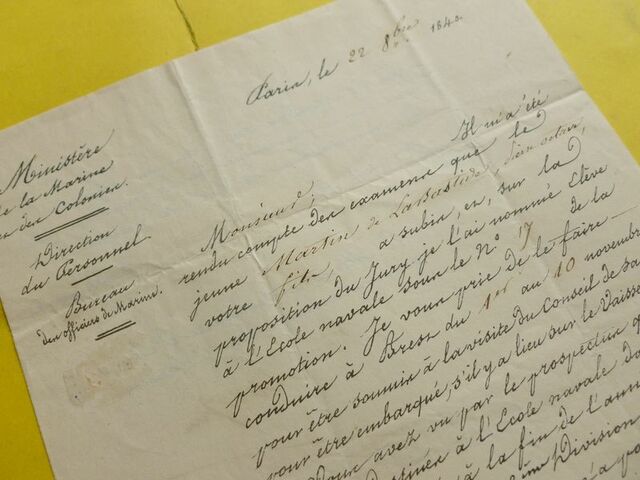 Paris, le 22 8bre 184
Ministère
de la Marine
et des Colonies.
Direction
du Personnel.
Bureau
des officiers de Marine.
Monsieur,
Il m'a été
rendu compte des examens que le
jeune Martin de LaBastide,
votre fils, a subis, et, sur la
proposition du Jury je l'ai nommé Elève
à l'Ecole navale sous le N° 7 de la
promotion. Je vous prie de le faire
conduire à Brest du 1er au 10 novembre
pour être soumis à la visite du Conseil de
pour être embarqué, s'il y a lieu sur le
vous avez vu par le prospectus
à l'Ecole navale
à la fin de l'
Division